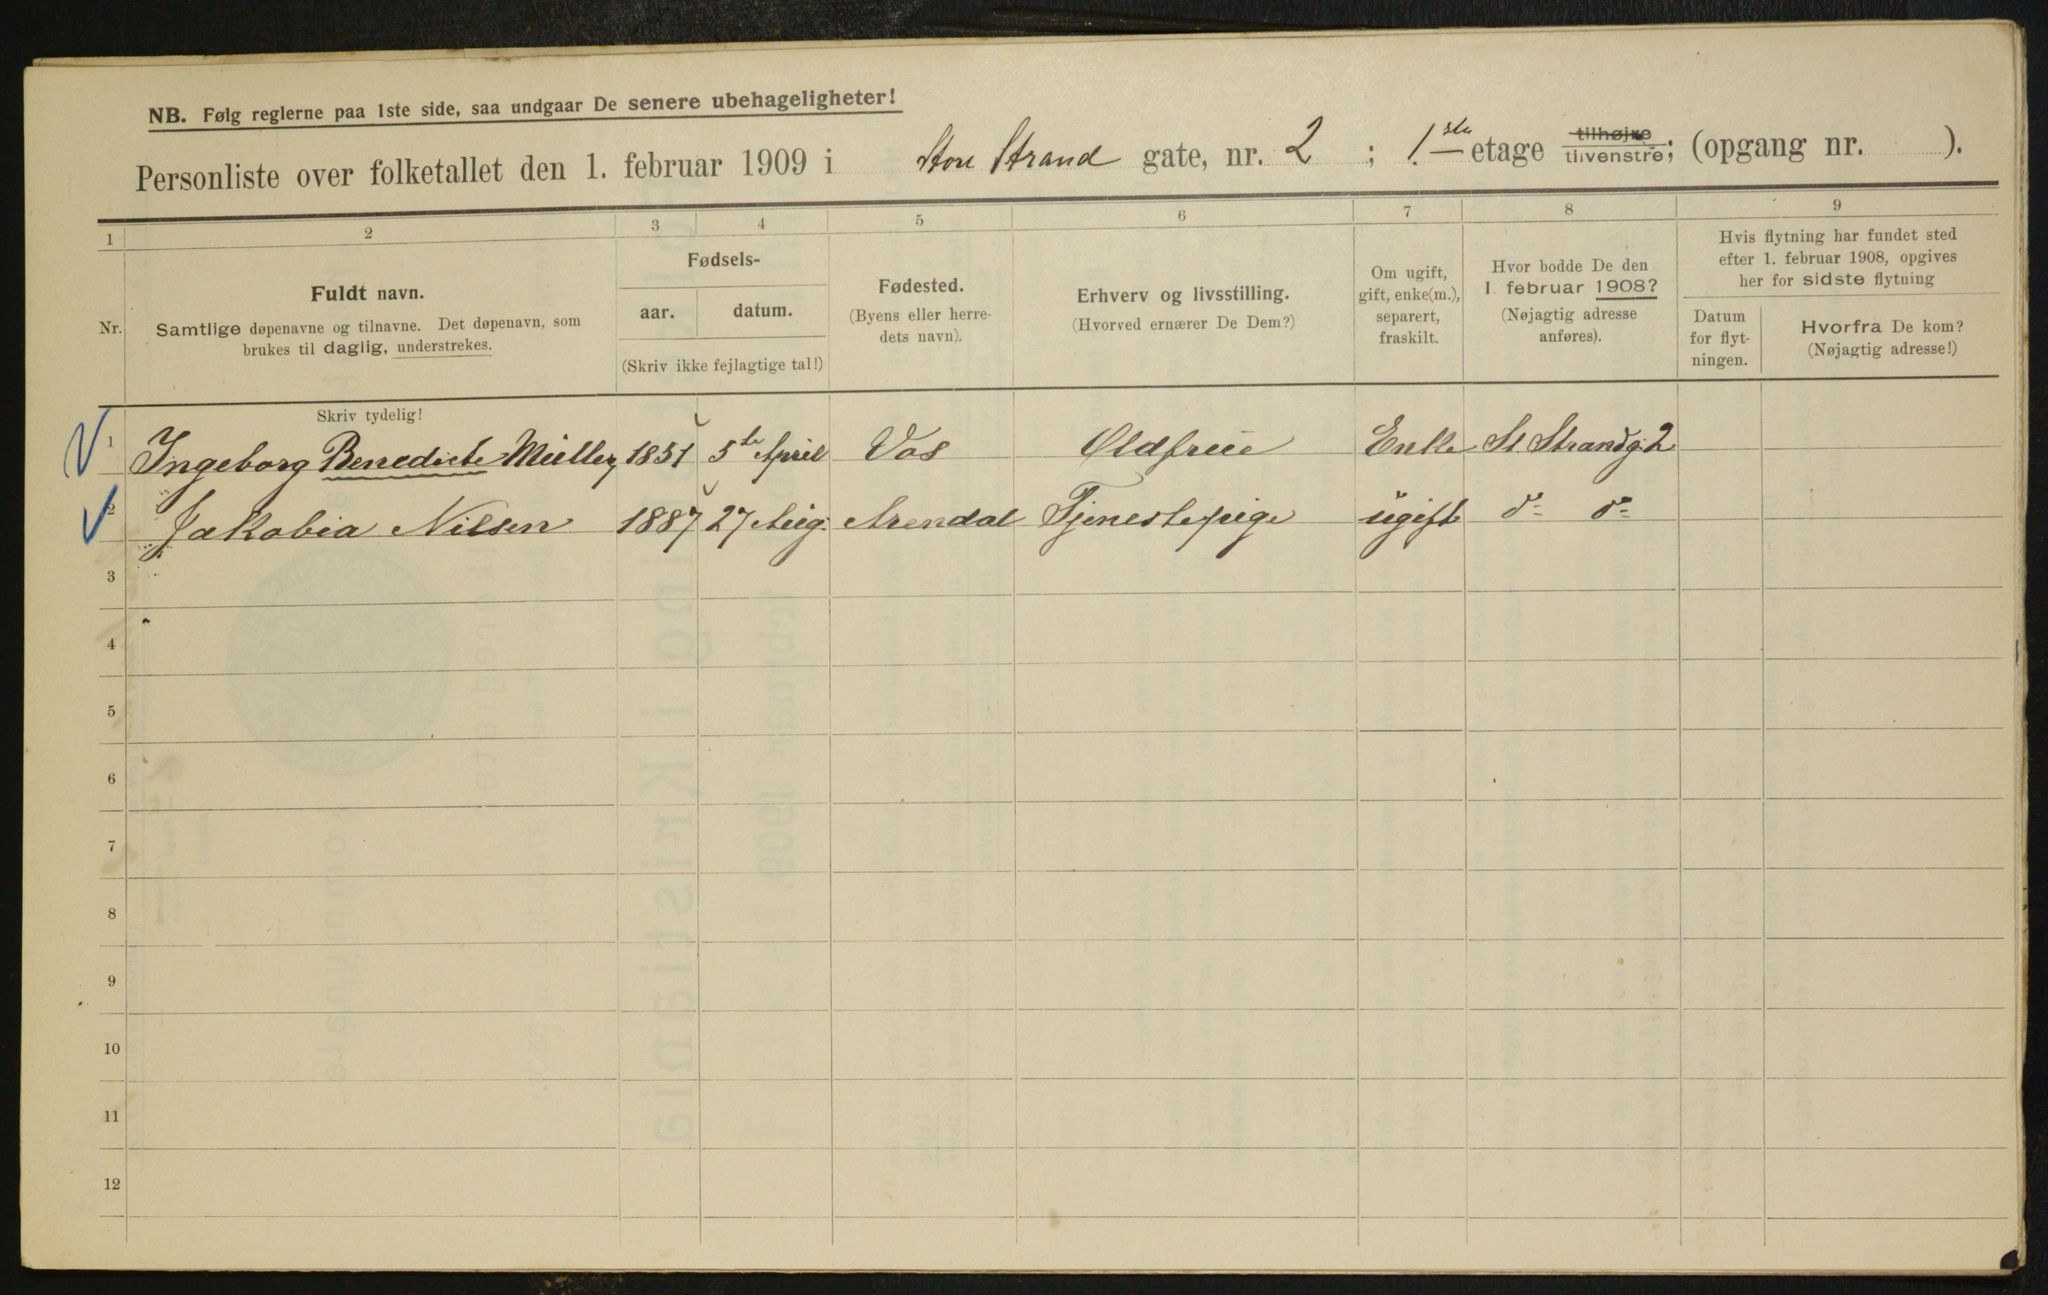 NB. Følg reglerne paa 1ste side, saa undgaar De senere ubehageligheter!
Personliste over folketallet den 1. februar 1909 i Store Strand gate, nr. 2 ; 1ste etage tilhøjre tilvenstre; (opgang nr. ).
1 2 3 4 5 6 7 8 9
Nr.
Fuldt navn.
Samtlige døpenavne og tilnavne. Det døpenavn, som
brukes til daglig, understrekes.
Fødsels-
aar. datum.
(Skriv ikke fejlagtige tal!)
Fødested.
(Byens eller herre-
dets navn).
Erhverv og livsstilling.
(Hvorved ernærer De Dem?)
Om ugift,
gift, enke(m.),
separert,
fraskilt.
Hvor bodde De den
1. februar 1908?
(Nøjagtig adresse
anføres).
Hvis flytning har fundet sted
efter 1. februar 1908, opgives
her for sidste flytning
Datum
for flyt-
ningen.
Hvorfra De kom?
(Nøjagtig adresse!)
Skriv tydelig!
1 Ingeborg Benedicte Müller 1851 5te April Vos Oldfrue Enke St Strandg. 2
2 Jakobia Nilsen 1887 27 Aug. Arendal Tjenestepige ugift do do
3
4
5
6
7
8
9
10
11
12